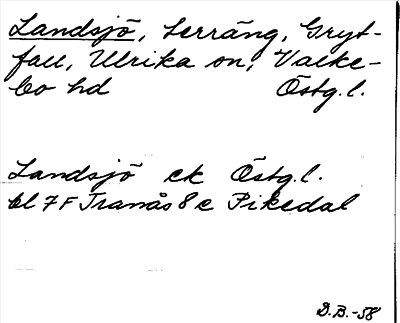 Landsjö, Serräng, Gryt-
fall, Ulrika sn, Valke-
bo hd Östg.l.
Landsjö ek Östg.l.
bl 7 F Tranås 8 e Pikedal
D.B.-58